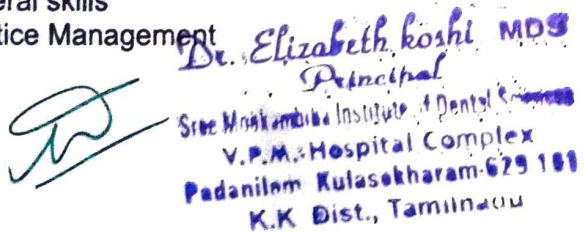 eral skills
tice Management
Dr. Elizabeth koshi MDS
Principal
Sree Mookambika Institute of Dental Sciences
V.P.M. Hospital Complex
Padanilam Kulasekharam-629 161
K.K Dist., Tamilnadu